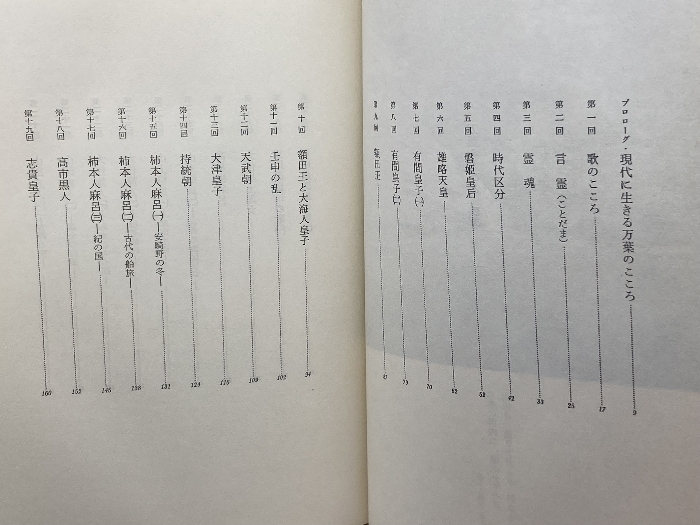 プロローグ・現代に生きる万葉のこころ……9
第一回 歌のこころ……17
第二回 言霊（ことだま）……25
第三回 霊魂……33
第四回 時代区分……42
第五回 磐姫皇后……52
第六回 雄略天皇……62
第七回 有間皇子㈠……70
第八回 有間皇子㈡……79
第九回 額田王……
第十回 額田王と大海人皇子……94
第十一回 壬申の乱……102
第十二回 天武朝……109
第十三回 大津皇子……
第十四回 持統朝……124
第十五回 柿本人麻呂㈠―安騎野の冬―……131
第十六回 柿本人麻呂㈡―古代の船旅―……138
第十七回 柿本人麻呂㈢―紀の国―……145
第十八回 高市黒人……152
第十九回 志貴皇子……160